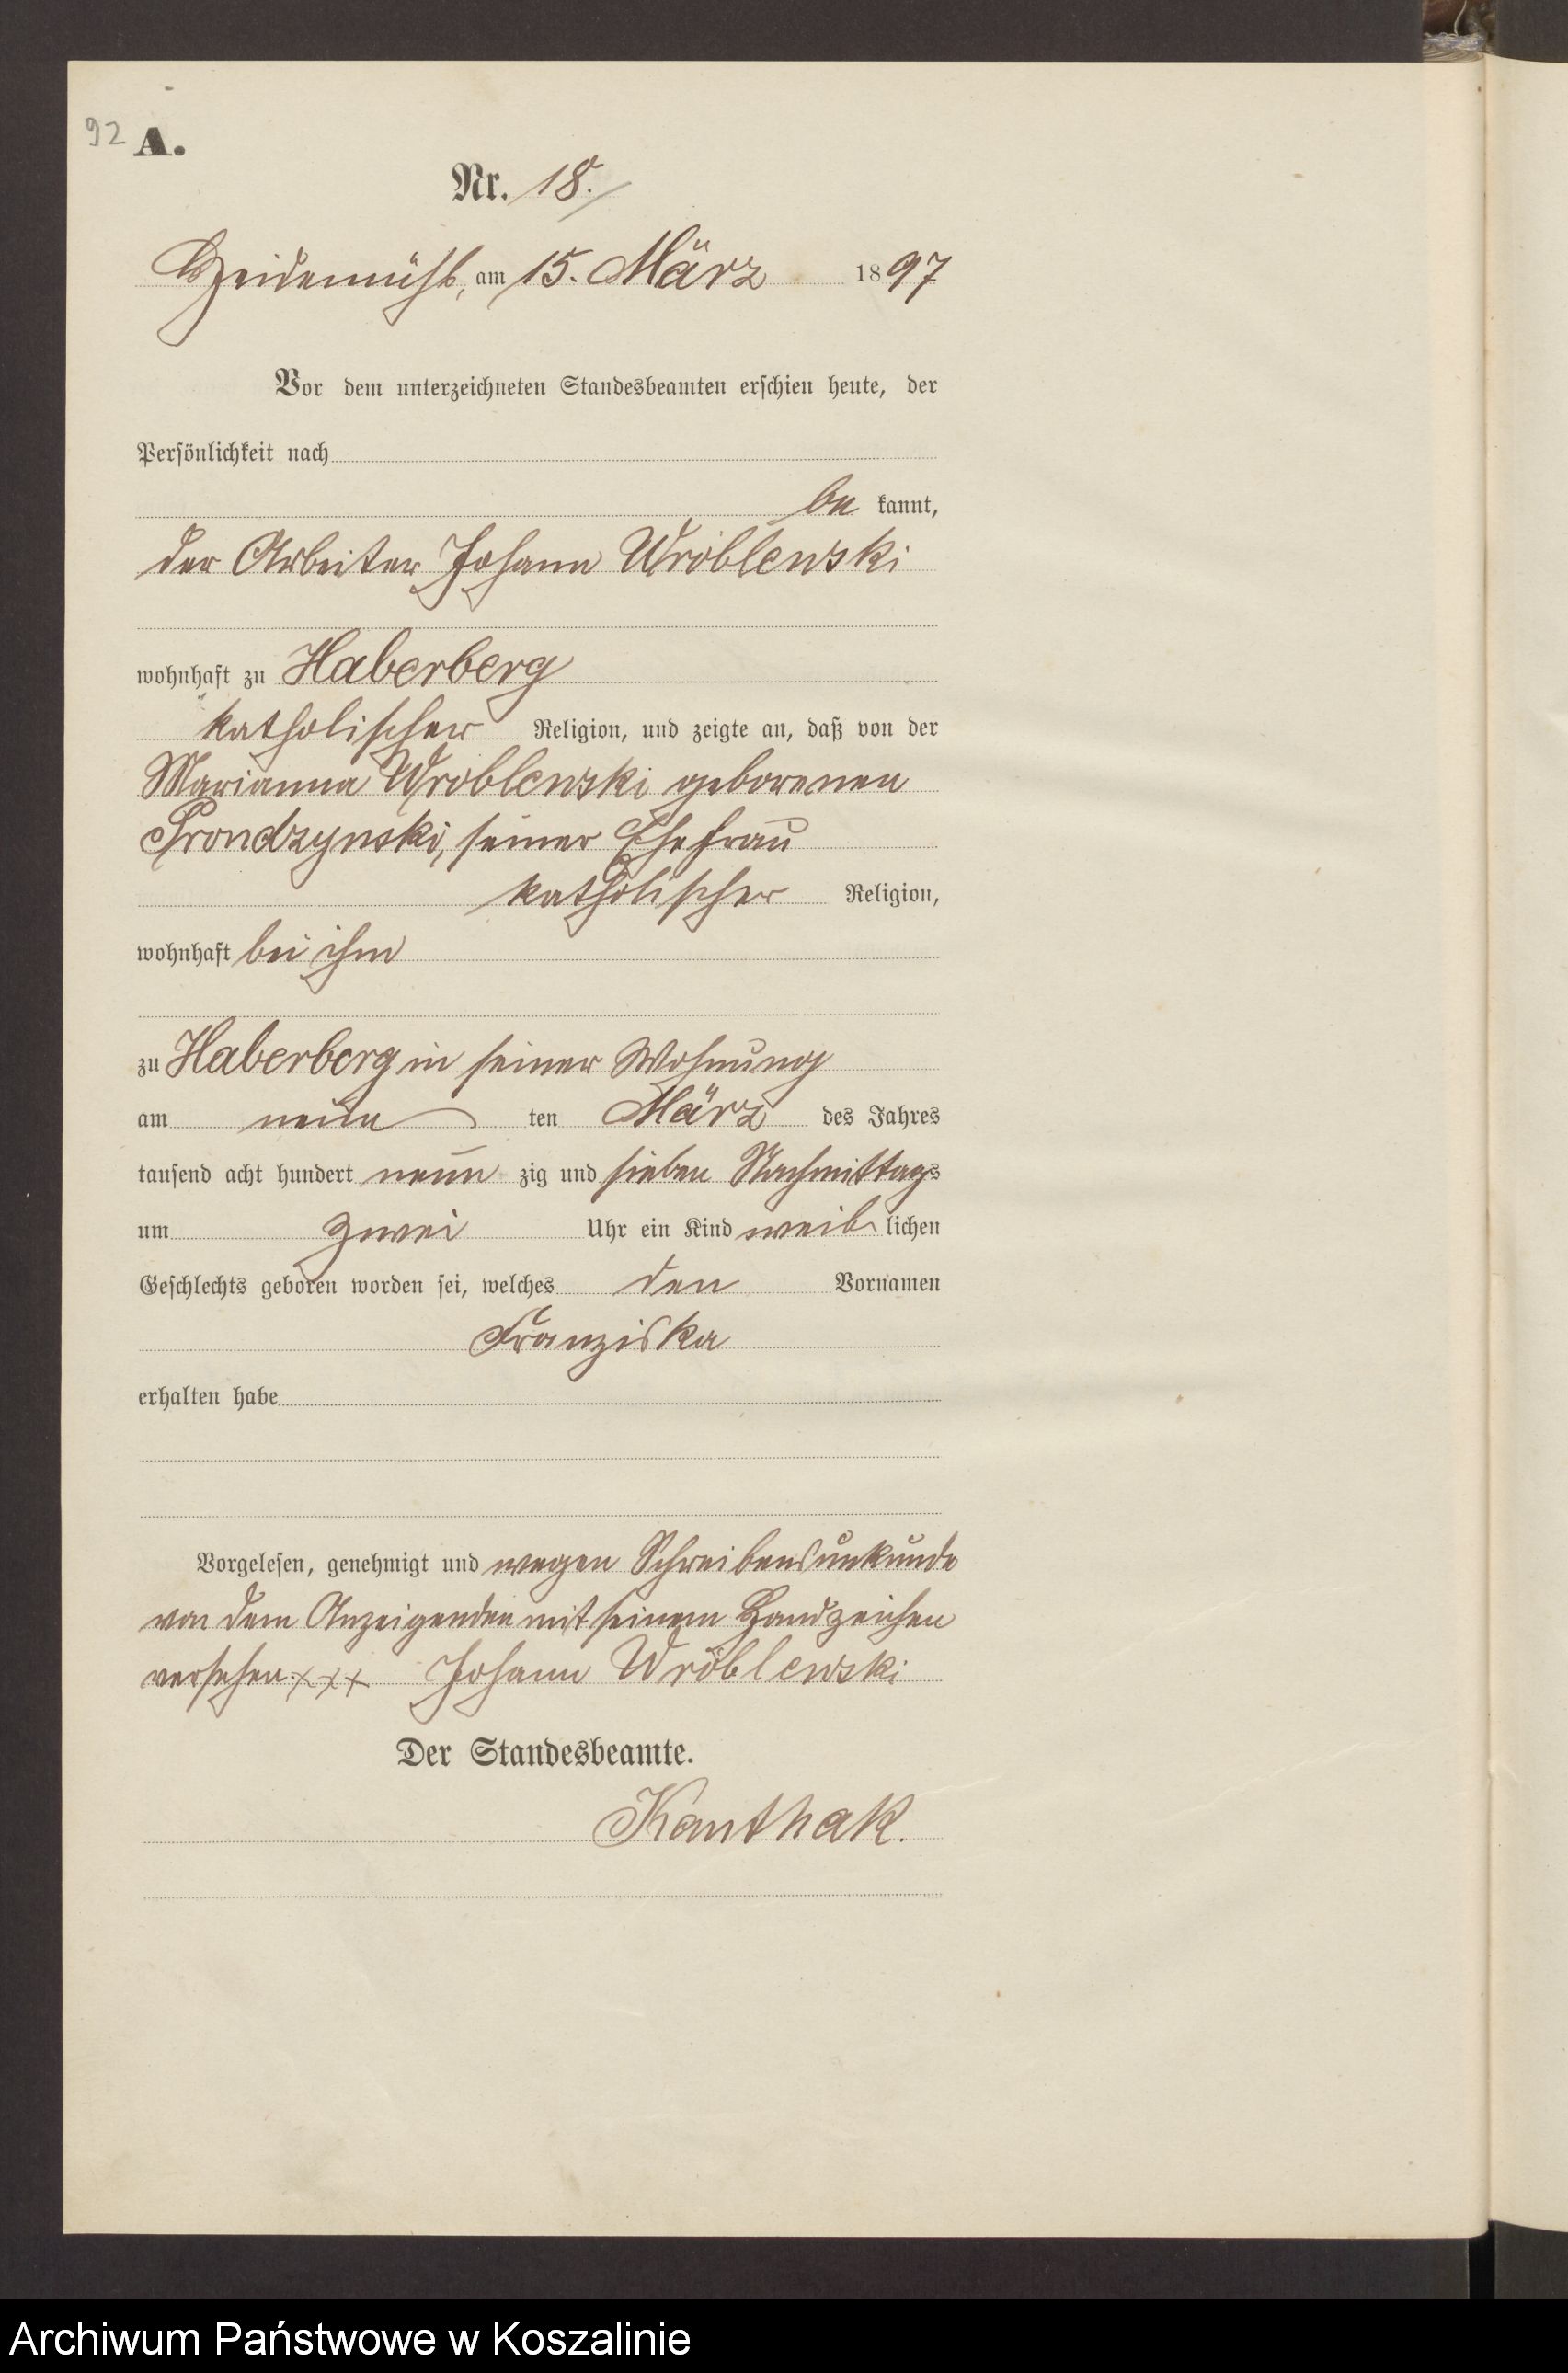 92 A.
Nr. 18.
Heidemühl, am 15. März 1897
Vor dem unterzeichneten Standesbeamten erschien heute, der
Persönlichkeit nach
be kannt,
der Arbeiter Johann Wróblewski
wohnhaft zu Haberberg
katholischer Religion, und zeigte an, daß von der
Marianna Wroblewski geborenen
Prondzynski, seiner Ehefrau
katholischer Religion,
wohnhaft bei ihm
zu Haberberg in seiner Wohnung
am neun ten März des Jahres
tausend acht hundert neun zig und sieben Nachmittags
um zwei Uhr ein Kind weib lichen
Geschlechts geboren worden sei, welches den Vornamen
Franziska
erhalten habe
Vorgelesen, genehmigt und wegen Schreibensunkunde
von dem Anzeigenden mit seinem Handzeichen
versehen. xxx Johann Wróblewski
Der Standesbeamte.
Kanthak.
Archiwum Państwowe w Koszalinie